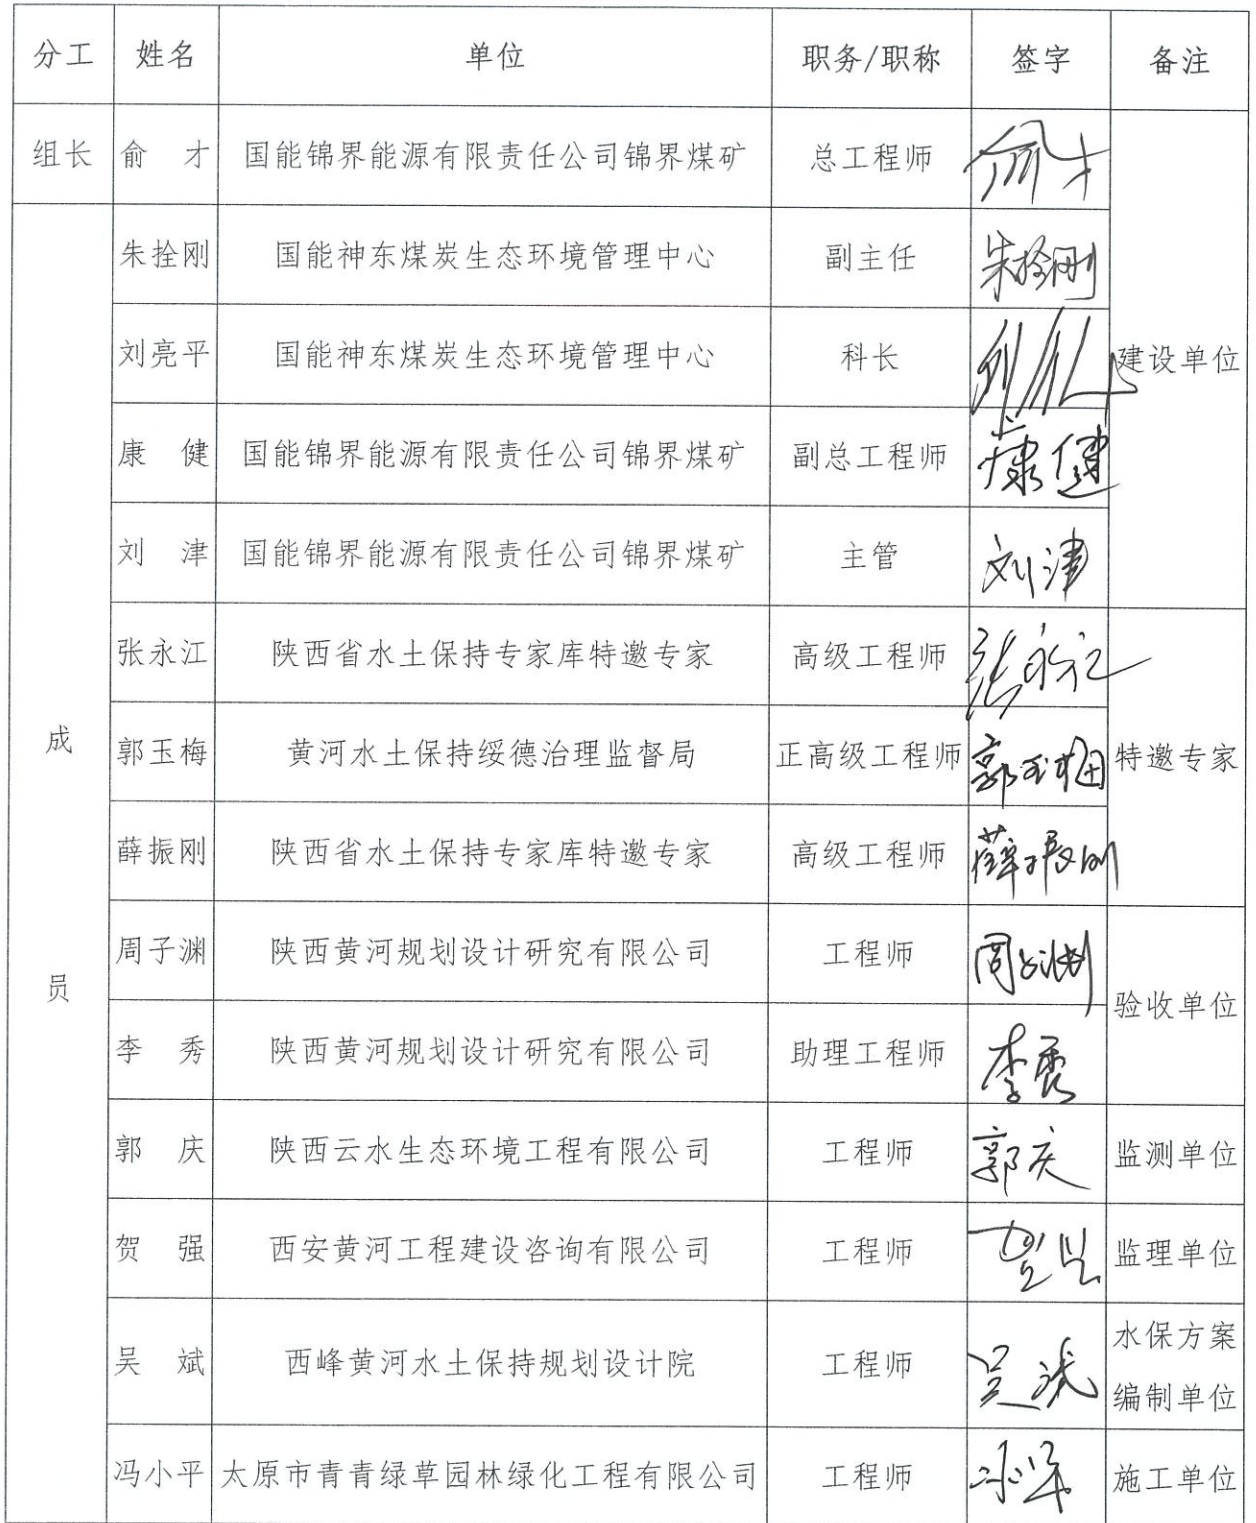 分工 姓名 单位 职务/职称 签字 备注
组长 俞 才 国能锦界能源有限责任公司锦界煤矿 总工程师 俞才
朱拴刚 国能神东煤炭生态环境管理中心 副主任 朱拴刚
刘亮平 国能神东煤炭生态环境管理中心 科长 建设单位
康 健 国能锦界能源有限责任公司锦界煤矿 副总工程师 康健
刘 津 国能锦界能源有限责任公司锦界煤矿 主管 刘津
张永江 陕西省水土保持专家库特邀专家 高级工程师 张永江
成 郭玉梅 黄河水土保持绥德治理监督局 正高级工程师 郭玉梅 特邀专家
薛振刚 陕西省水土保持专家库特邀专家 高级工程师 薛振刚
员 周子渊 陕西黄河规划设计研究有限公司 工程师 周子渊
验收单位
李 秀 陕西黄河规划设计研究有限公司 助理工程师 李秀
郭 庆 陕西云水生态环境工程有限公司 工程师 郭庆 监测单位
贺 强 西安黄河工程建设咨询有限公司 工程师 贺强 监理单位
吴 斌 西峰黄河水土保持规划设计院 工程师 吴斌 水保方案
编制单位
冯小平 太原市青青绿草园林绿化工程有限公司 工程师 冯小平 施工单位